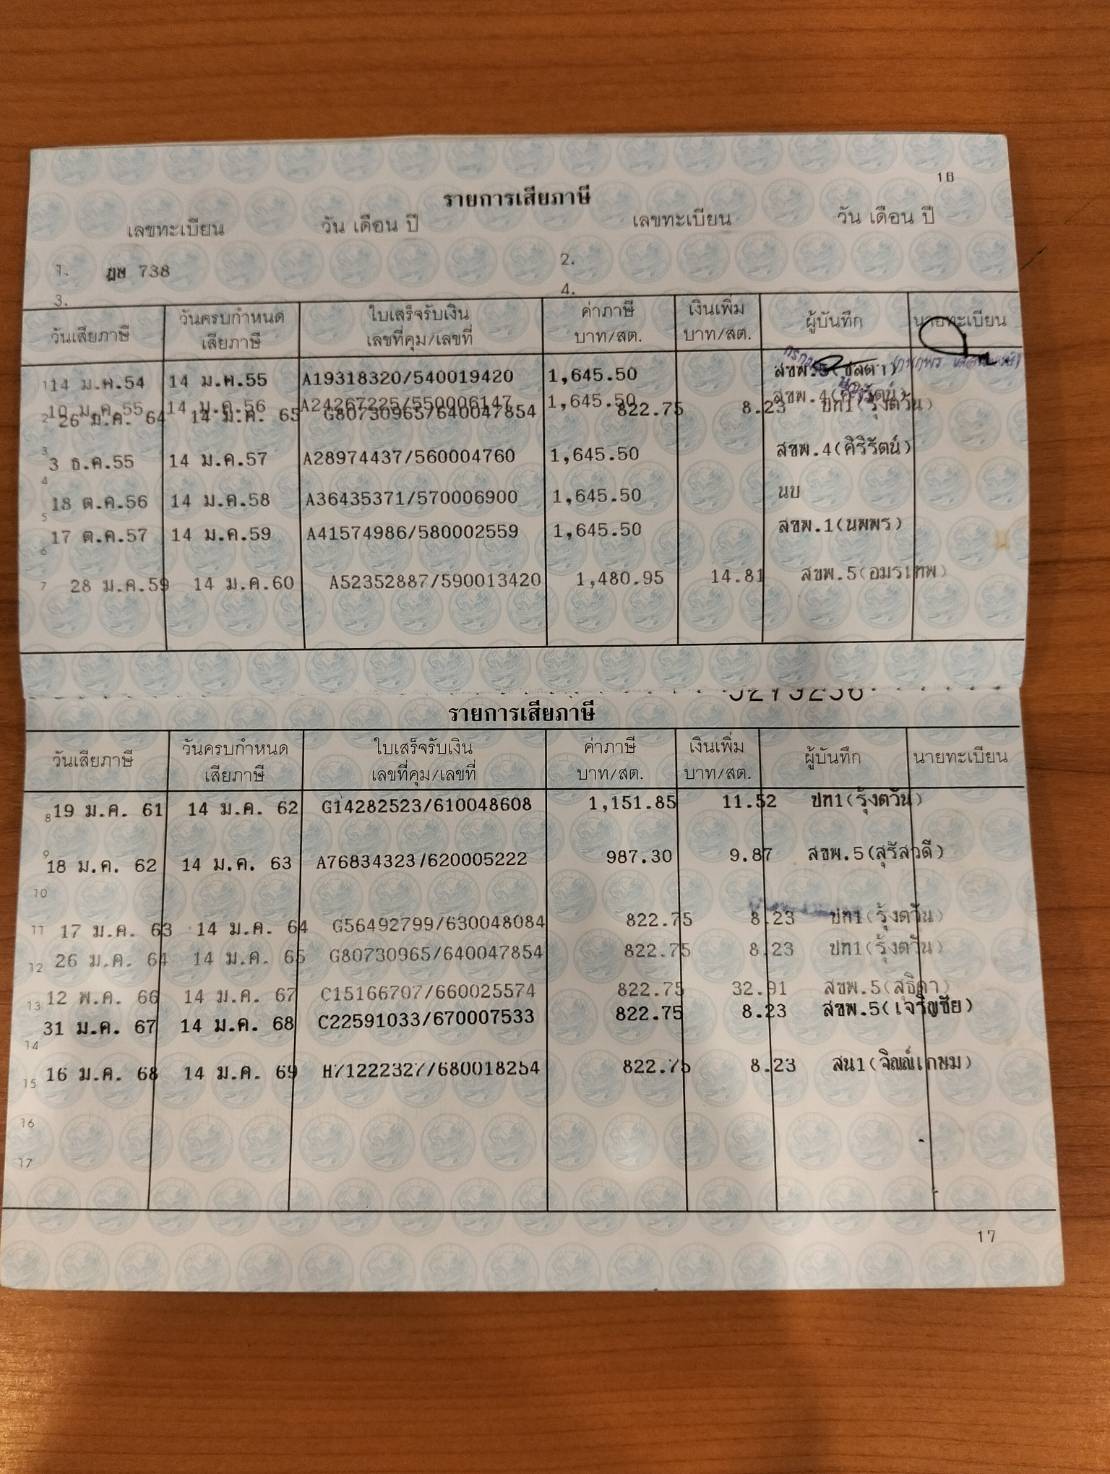 18
รายการเสียภาษี
เลขทะเบียน วัน เดือน ปี เลขทะเบียน วัน เดือน ปี
1. ฎษ 738 2.
3. 4.
วันเสียภาษี วันครบกำหนดเสียภาษี ใบเสร็จรับเงิน เลขที่คุม/เลขที่ ค่าภาษี บาท/สต. เงินเพิ่ม บาท/สต. ผู้บันทึก นายทะเบียน
1 14 ม.ค.54 14 ม.ค.55 A19318320/540019420 1,645.50 สขพ.5(ชลิตา)
10 ม.ค.55 14 ม.ค.56 A24267225/550006147 1,645.50 สขพ.4(ศิริรัตน์)
2 26 ม.ค. 64 14 ม.ค. 65 G80730965/640047854 822.75 8.23 ขก1(รุ้งตวัน)
3 3 ธ.ค.55 14 ม.ค.57 A28974437/560004760 1,645.50 สขพ.4(ศิริรัตน์)
4
18 ต.ค.56 14 ม.ค.58 A36435371/570006900 1,645.50 นบ
5
17 ต.ค.57 14 ม.ค.59 A41574986/580002559 1,645.50 สขพ.1(นพพร)
6
7 28 ม.ค.59 14 ม.ค.60 A52352887/590013420 1,480.95 14.81 สขพ.5(อมรเทพ)
รายการเสียภาษี
วันเสียภาษี วันครบกำหนดเสียภาษี ใบเสร็จรับเงิน เลขที่คุม/เลขที่ ค่าภาษี บาท/สต. เงินเพิ่ม บาท/สต. ผู้บันทึก นายทะเบียน
8 19 ม.ค. 61 14 ม.ค. 62 G14282523/610048608 1,151.85 11.52 ขก1(รุ้งตวัน)
9 18 ม.ค. 62 14 ม.ค. 63 A76834323/620005222 987.30 9.87 สขพ.5(สุรัสวดี)
10
11 17 ม.ค. 63 14 ม.ค. 64 G56492799/630048084 822.75 8.23 ขก1(รุ้งตวัน)
12 26 ม.ค. 64 14 ม.ค. 65 G80730965/640047854 822.75 8.23 ขก1(รุ้งตวัน)
13 12 พ.ค. 66 14 ม.ค. 67 C15166707/660025574 822.75 32.91 สขพ.5(สธิดา)
31 ม.ค. 67 14 ม.ค. 68 C22591033/670007533 822.75 8.23 สขพ.5(เจริญชัย)
14
15 16 ม.ค. 68 14 ม.ค. 69 H71222327/680018254 822.75 8.23 สน1(จิณณ์เกษม)
16
17
17